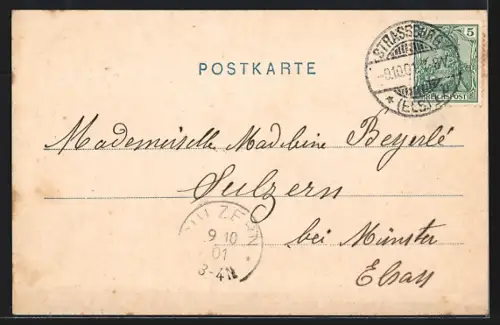 STRASSBURG
9.10.01
* (ELS.)
5
REICHSPOST
POSTKARTE
Mademoiselle Madeleine Beyerlé
Sulzern
bei Münster
Elsass
SULZERN
9 10
01
3-4N